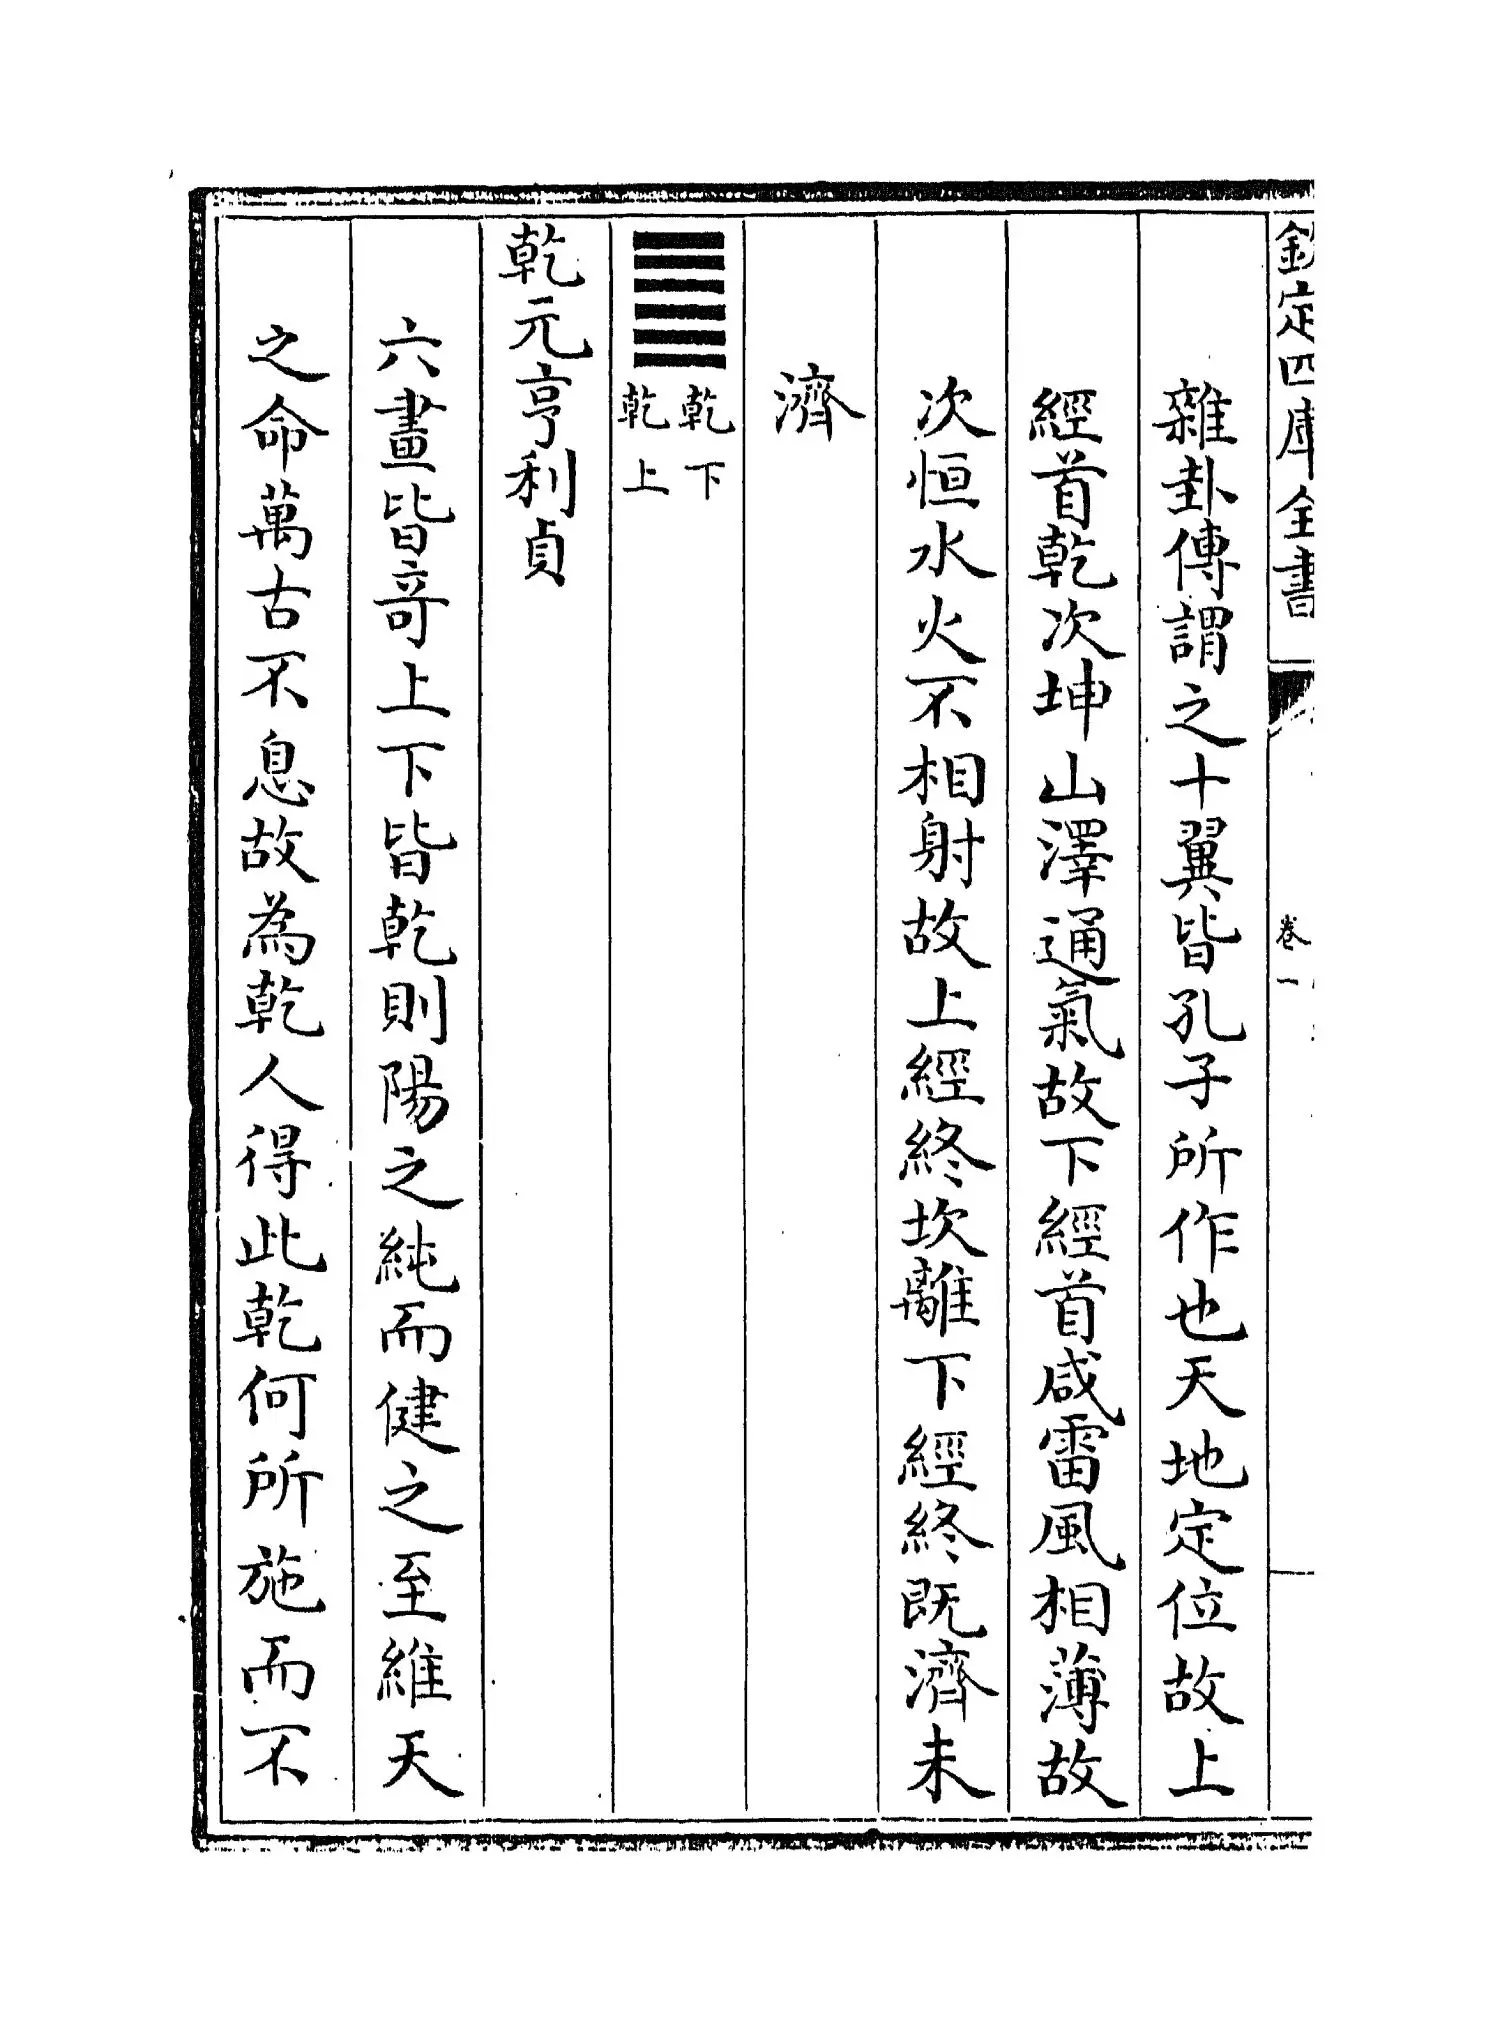 欽定四庫全書
卷一
雜卦傳謂之十翼皆孔子所作也天地定位故上
經首乾次坤山澤通氣故下經首咸雷風相薄故
次恒水火不相射故上經終坎離下經終既濟未
濟
乾下
乾上
乾元亨利貞
六畫皆竒上下皆乾則陽之純而健之至維天
之命萬古不息故為乾人得此乾何所施而不